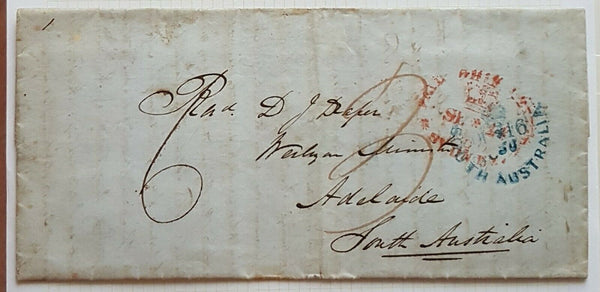 1
6
3
Revd. D J Draper
Wesleyan Minister
Adelaide
South Australia
SYDNEY
16
SOUTH AUSTRALIA